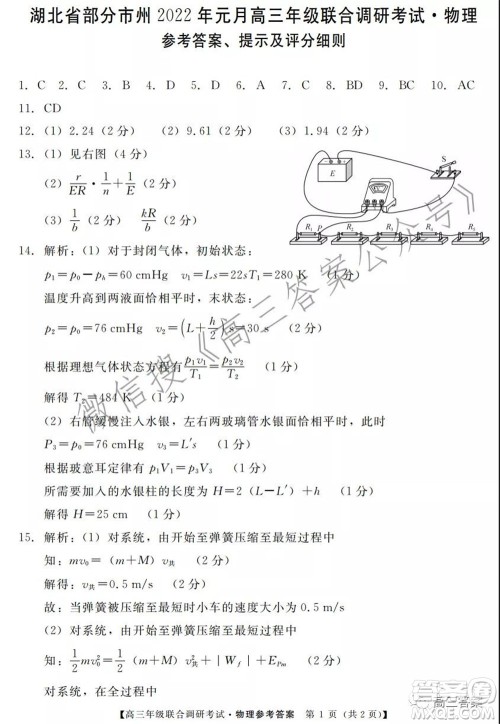 湖北省部分市州2022年元月高三年级联合调研考试·物理
参考答案、提示及评分细则
1. C 2. C 3. D 4. B 5. B 6. D 7. C 8. AC 9. BD 10. AC
11. CD
12. (1) 2.24 (2分) (2) 9.61 (2分) (3) 1.94 (2分)
13. (1) 见右图 (4分)
(2) r/ER · 1/n + 1/E (2分)
(3) 1/b (2分) kR/b (2分)
E S
R₁ P R₂ R₃ R₄ R₅
14. 解析:(1) 对于封闭气体,初始状态:
p₁=p₀-pₕ=60 cmHg v₁=Ls=22s T₁=280 K (1分)
温度升高到两液面恰相平时,末状态:
p₂=p₀=76 cmHg v₂=(L+h/2)s=30 s (2分)
根据理想气体状态方程有 p₁v₁/T₁=p₂v₂/T₂ (2分)
解得 T₂=484 K (1分)
(2) 右管缓慢注入水银,左右两玻璃管水银面恰相平时,此时
P₃=p₀=76 cmHg v₃=L′s (1分)
根据玻意耳定律有 p₁V₁=P₃V₃ (1分)
所需要加入的水银柱的长度为 H=2(L-L′)+h (1分)
解得 H=25 cm (1分)
15. 解析:(1) 对系统,由开始至弹簧压缩至最短过程中
知:mv₀=(m+M)v共 (2分)
解得:v共=0.5 m/s (2分)
故:当弹簧被压缩至最短时小车的速度大小为0.5 m/s (1分)
(2) 对系统,由开始至弹簧压缩至最短过程中
知:1/2 mv₀²=1/2(m+M)v共²+|Wf|+EPm (2分)
解得:|Wf|=4 J (1分)
对系统,在全过程中
【高三年级联合调研考试·物理参考答案 第1页(共2页)】
微信搜《高三答案公众号》
高三答案